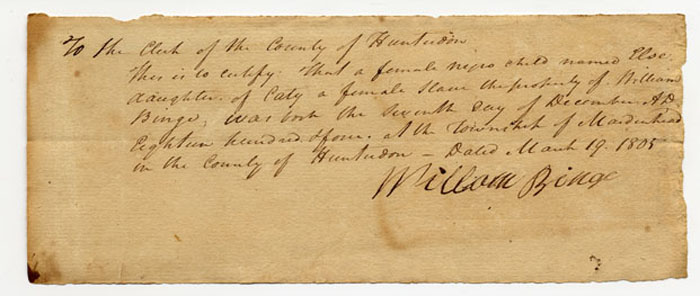 To the Clerk of the County of Hunterdon
This is to certify. that a female negro child named Else
daughter of Caty a female Slave the property of William
Binge, was born the Seventh Day of December AD
Eighteen hundred & four. at the Township of Maidenhead
in the County of Hunterdon – Dated March 19. 1805
William Binge